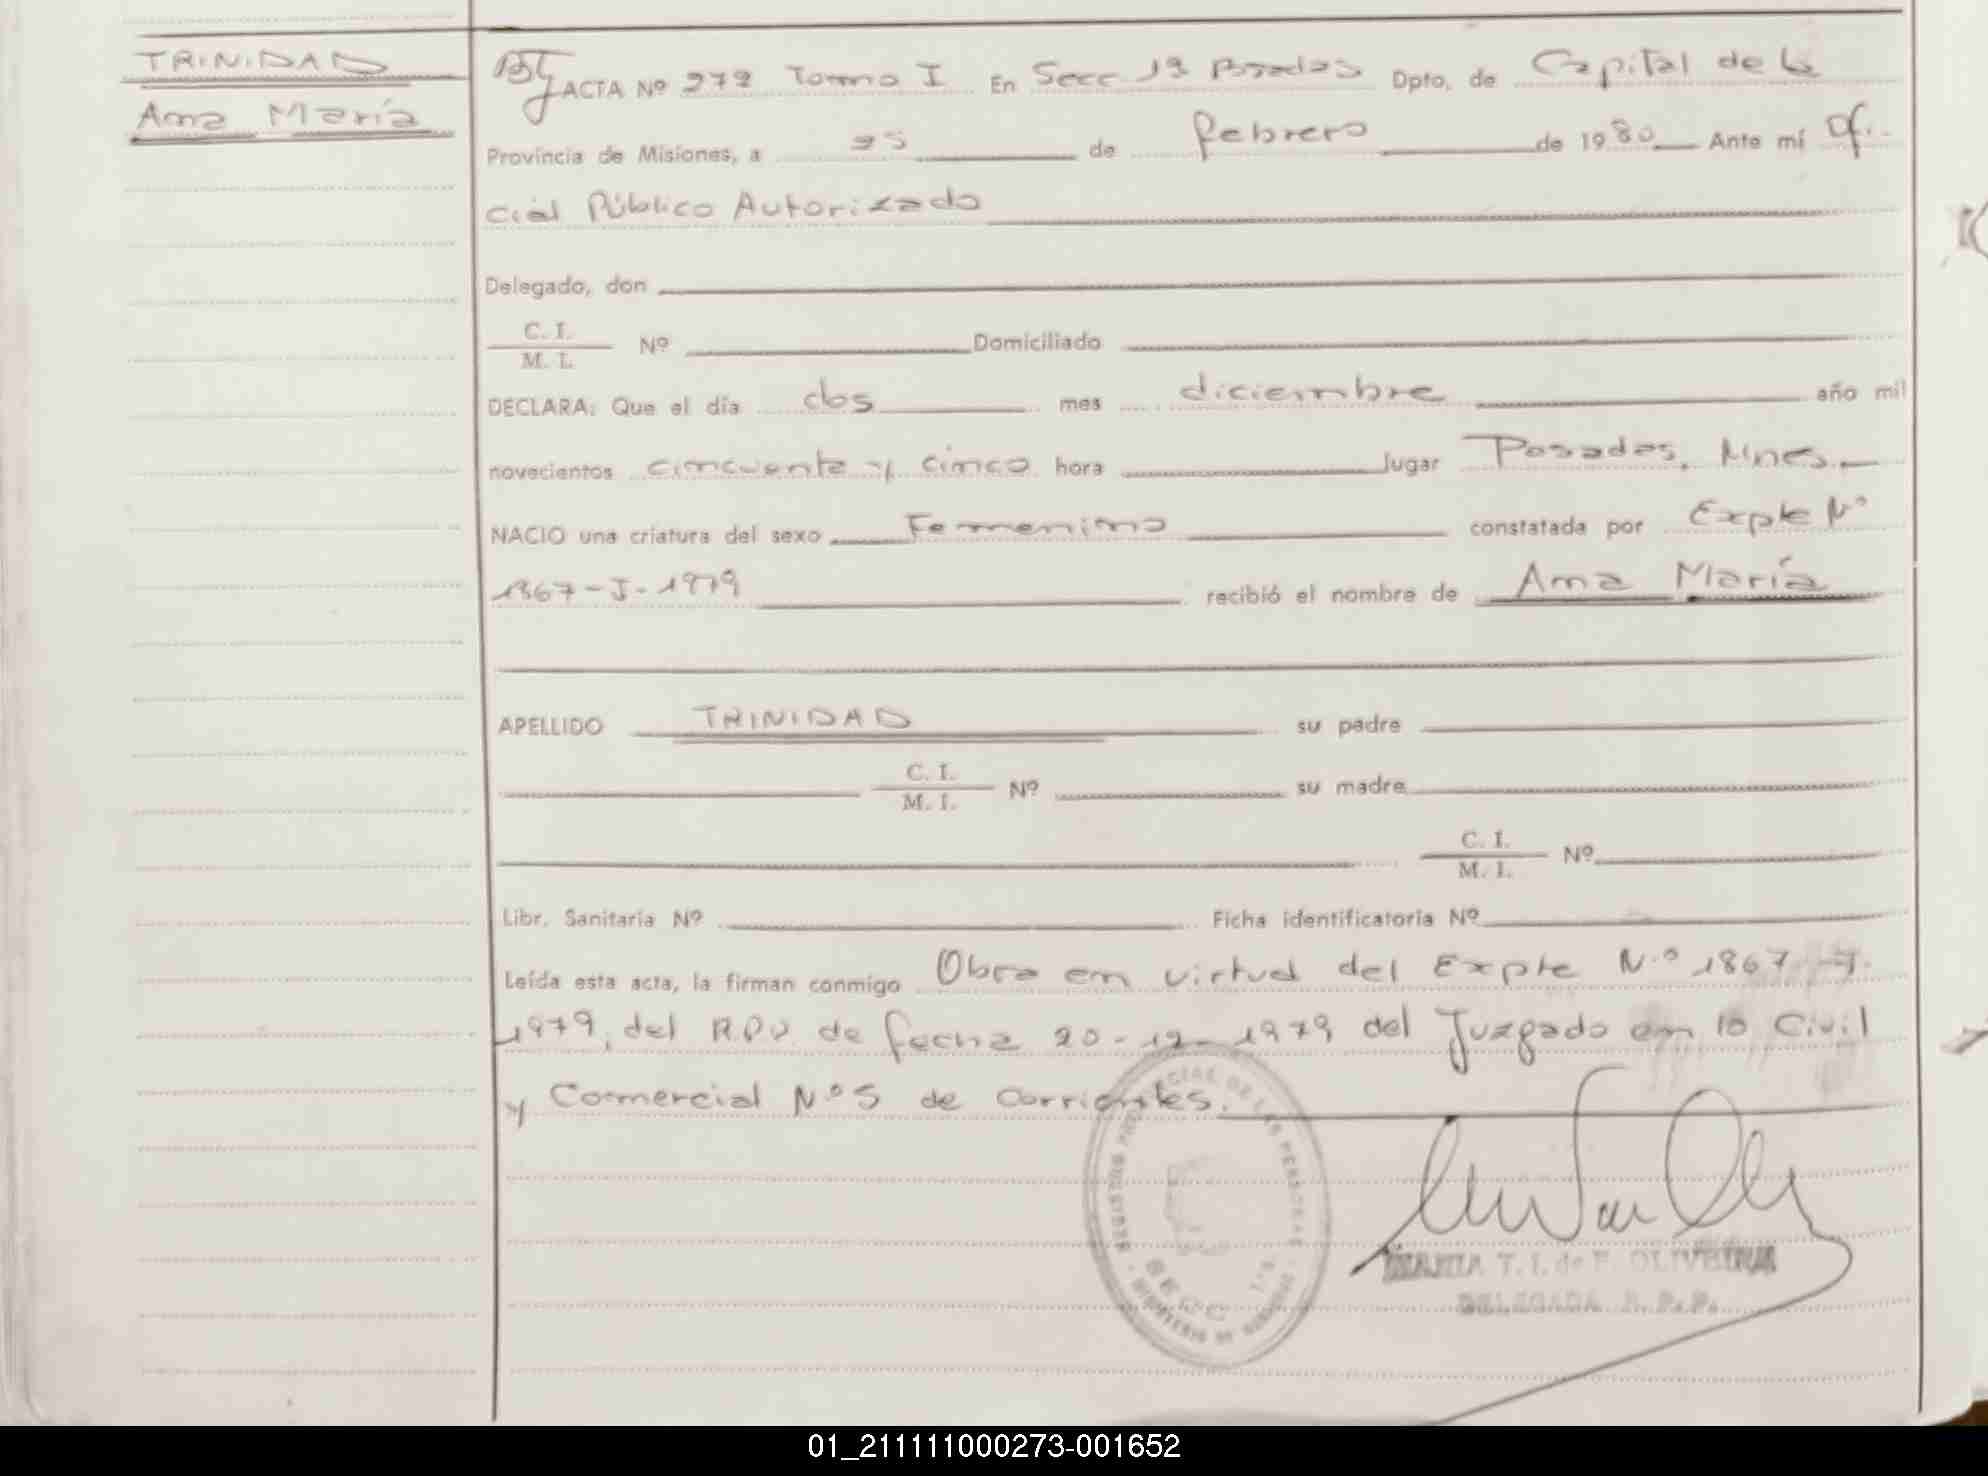 TRINIDAD
Ana María
ACTA Nº 272 Tomo I En Secc 1ª Posadas Dpto. de Capital de la
Provincia de Misiones, a 25 de febrero de 1980 Ante mí Ofi-
cial Público Autorizado
Delegado, don
C. I.
M. I. Nº Domiciliado
DECLARA: Que el día dos mes diciembre año mil
novecientos cincuenta y cinco hora lugar Posadas, Mnes.
NACIO una criatura del sexo Femenino constatada por Expte Nº
1867-J-1979 recibió el nombre de Ana María
APELLIDO TRINIDAD su padre
C. I.
M. I. Nº su madre
C. I.
M. I. Nº
Libr. Sanitaria Nº Ficha identificatoria Nº
Leída esta acta, la firman conmigo Obra en virtud del Expte N.º 1867-J-
1979, del R.P.P. de fecha 20-12-1979 del Juzgado en lo Civil
y Comercial Nº 5 de Corrientes.
PROVINCIAL DE LAS PERSONAS
SECC
T. I. de F. OLIVEIRA
DELEGADA R. P. P.
01_211111000273-001652